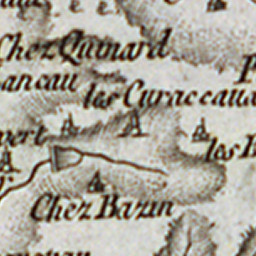 Chez Quinard
ancau
les Curaceaux
vert
les B
Chez Bazin